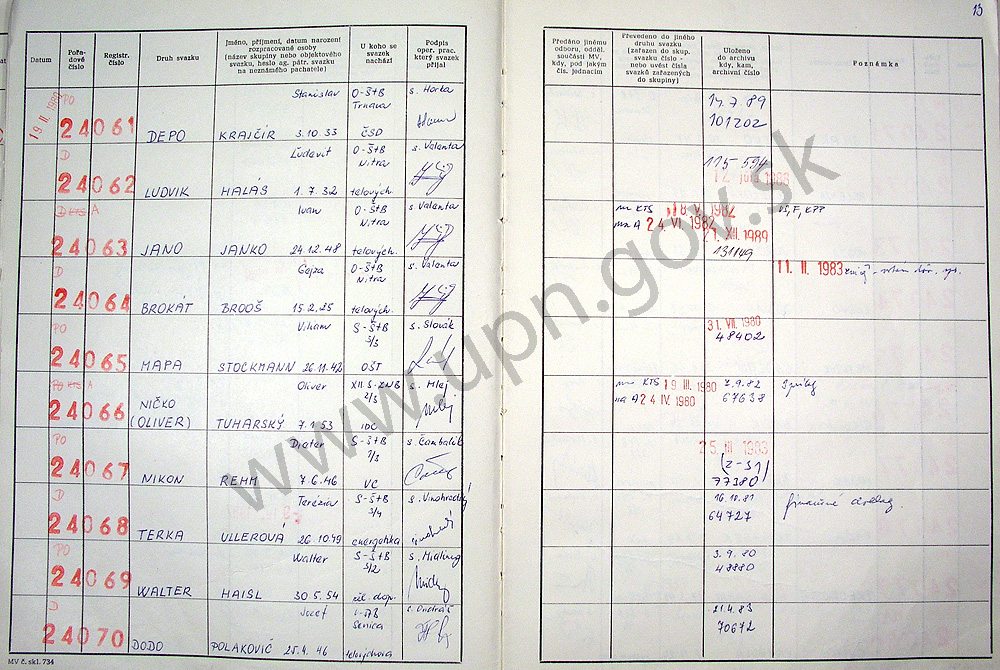 13
Datum
Pořa-
dové
číslo
Registr.
číslo
Druh svazku
Jméno, příjmení, datum narození
rozpracované osoby
(název skupiny nebo objektového
svazku, heslo ag. pátr. svazku
na neznámého pachatele)
U koho se
svazek
nachází
Podpis
oper. prac.
který svazek
přijal
Předáno jinému
odboru, odděl.
součásti MV,
kdy, pod jakým
čís. jednacím
Převedeno do jiného
druhu svazku
(zařazen do skup.
svazku číslo -
nebo uvést čísla
svazků zařazených
do skupiny)
Uloženo
do archivu
kdy, kam,
archivní číslo
Poznámka
PO Stanislav O-ŠtB s. Horka
19 II. Trnava 14.7.89
24061 DEPO KRAJČÍR 3.10.33 ČSD 101202
D Ľudovít O-ŠtB s. Valenta
Nitra 115 594
24062 LUDVIK HALÁS 1.7.32 telových.
D KTS A Ivan O-ŠtB s. Valenta nv KTS 18 V. 1982 VS, F, KPP
Nitra na A 24 VI. 1982 21. XII. 1989
24063 JANO JANKO 24.12.48 telových. 131149
D Gejza O-ŠtB s. Valenta 11. II. 1983
Nitra
24064 BROKÁT BROOŠ 15.2.25 telových.
PO Viliam S-ŠtB s. Slovák 31. VII. 1980
3/3 48402
24065 MAPA STOCKMANN 26.11.42 OŠT
PO KTS A Oliver XII. S-ZNB s. Mlej nv KTS 19 III. 1980 7.9.82
2/3 na A 24 IV. 1980 67638
24066 NIČKO
(OLIVER) TUHARSKÝ 7.1.53 IDC
PO Dieter S-ŠtB s. Čambalík 25. III 1983
7/3 (Z-SI)
24067 NIKON REHM 7.6.46 VC 77380
D Terézia S-ŠtB s. Vinohradský 16.10.81
3/4 64727
24068 TERKA ULLEROVÁ 26.10.49 energetika
PO Walter S-ŠtB 3.9.80
3/2 48880
24069 WALTER HAISL 30.5.54 cil. dop.
D Jozef s. Ondráš 21.4.83
Senica 70672
24070 DODO POLAKOVIČ 25.4.46 telovýchova
MV č. skl. 734
www.upn.gov.sk